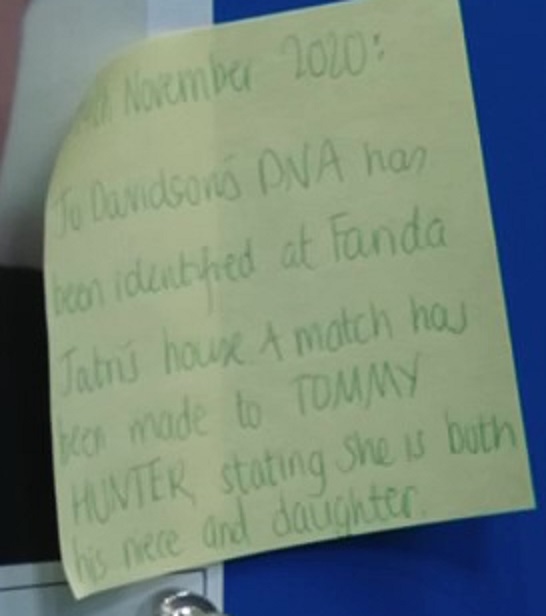 November 2020:
Jo Davidson's DNA has
been identified at Farida
Jatri's house A match has
been made to TOMMY
HUNTER stating she is both
his niece and daughter.